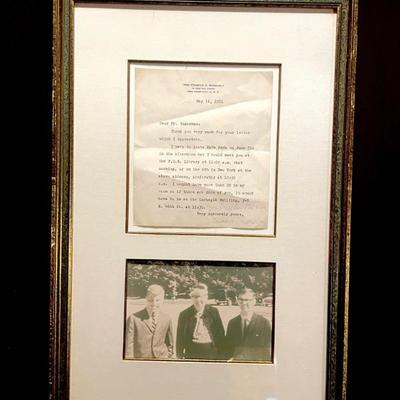 MRS. FRANKLIN D. ROOSEVELT
May 14, 1951
Dear Mr.
Thank you very much for your letter
which I appreciate.
I have to leave Hyde Park on June 7th
in the afternoon but I could meet you at
the F.D.R. Library at 11:30 a.m. that
morning, or on the 8th in New York at the
above address, preferably at
a.m. I cannot have more than 20 in my
room so if there are more of you, it would
have to be at the Carnegie Building,
E. 46th St. at
Very sincerely yours,